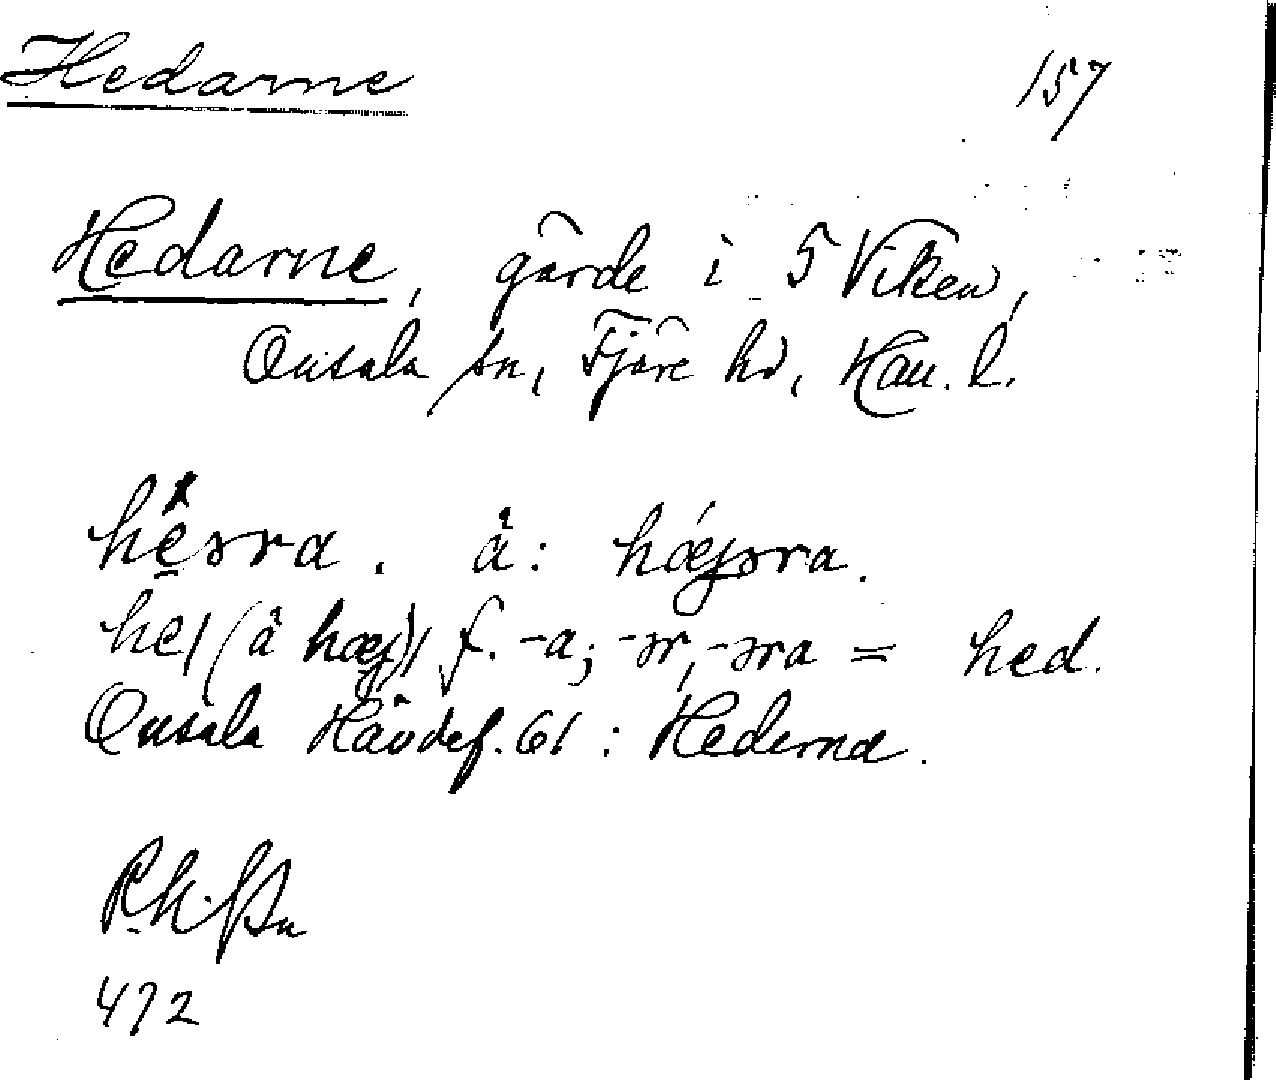 Hedarne
157
Hedarne, gärde i 5 Viken,
Onsala sn, Fjäre hd, Hall. l.
hêəra. ä: hǽjəra.
he/(ä hæj)/ f. -a; -ər, -əra = hed.
Onsala Hävdef. 61 : Hederna.
472